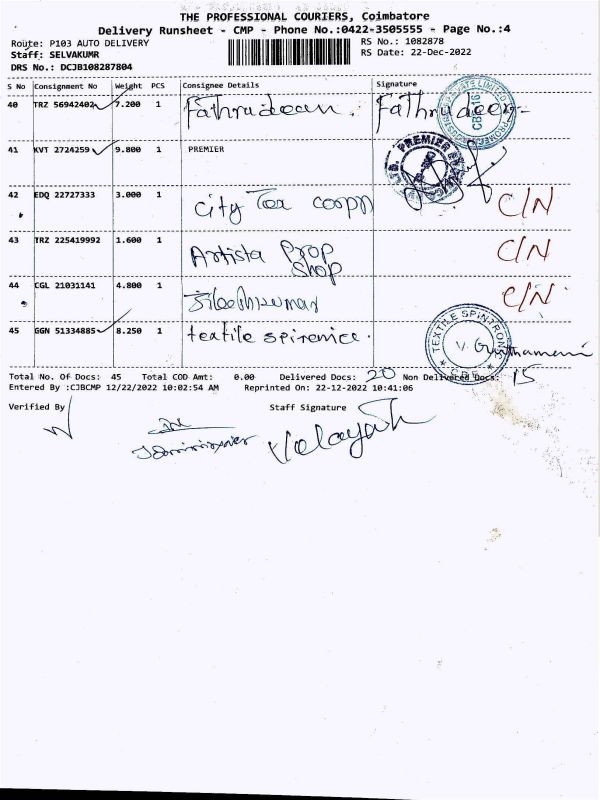 THE PROFESSIONAL COURIERS, Coimbatore
Delivery Runsheet - CMP - Phone No.:0422-3505555 - Page No.:4
Route: P103 AUTO DELIVERY RS No.: 1082878
Staff: SELVAKUMR RS Date: 22-Dec-2022
DRS No.: DCJB108287804
S No Consignment No Weight PCS Consignee Details Signature
40 TRZ 56942402 7.200 1 Fathrudeen. Fathrudeen
41 KVT 2724259 9.800 1 PREMIER PREMIER
42 EDQ 22727333 3.000 1 City Tax corpn C/N
43 TRZ 225419992 1.600 1 Artista Prop C/N
Shop
44 CGL 21031141 4.800 1 C/N
45 GGN 51334885 8.250 1 textile spirenice. TEXTILE SPINTRONIC CBE V.
Total No. Of Docs: 45 Total COD Amt: 0.00 Delivered Docs: 20 Non Delivered Docs: 15
Entered By :CJBCMP 12/22/2022 10:02:54 AM Reprinted On: 22-12-2022 10:41:06
Verified By Staff Signature